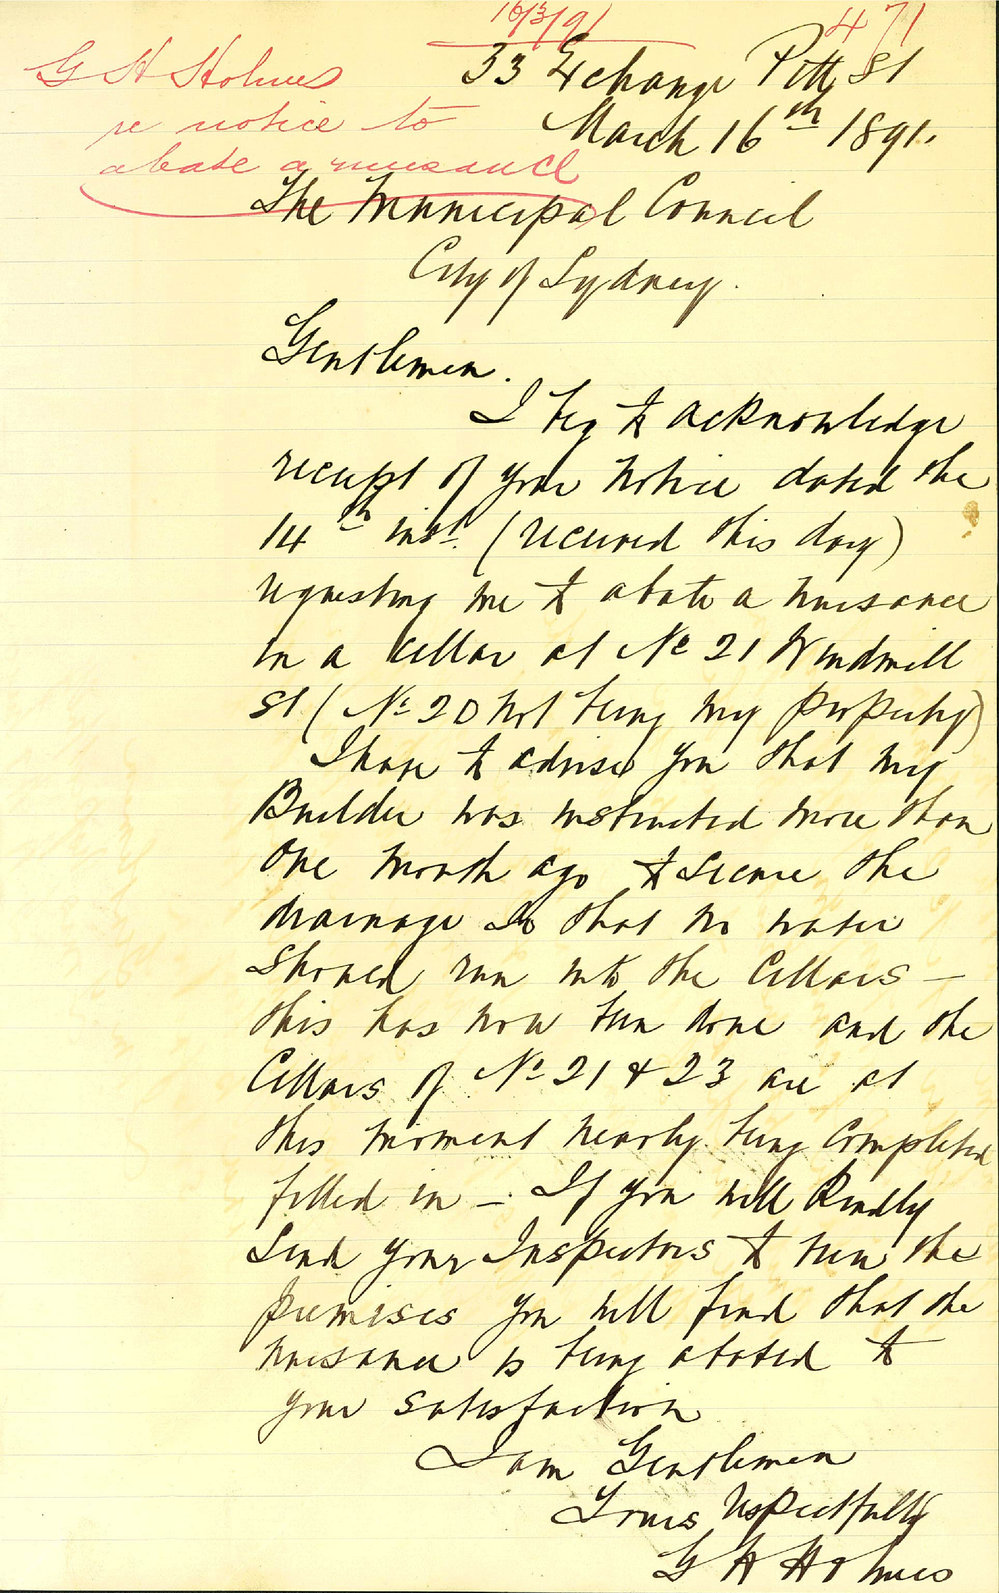 16/3/91
471
G H Holmes
re notice to
abate a nuisance
33 Exchange Pitt St
March 16th 1891.
The Municipal Council
City of Sydney.
Gentlemen.
I beg to acknowledge
receipt of your notice dated the
14th inst. (received this day)
requesting me to abate a nuisance
in a cellar at No 21 Windmill
St (No 20 not being my property)
I have to advise you that my
Builder was instructed more than
one month ago to secure the
drainage so that no water
should run into the Cellars –
this has now been done and the
Cellars of No 21 & 23 are at
this moment nearly being completed
filled in –. If you will kindly
send your Inspectors to view the
premises you will find that the
nuisance is being abated to
your satisfaction
I am Gentlemen
Yours respectfully
G H Holmes